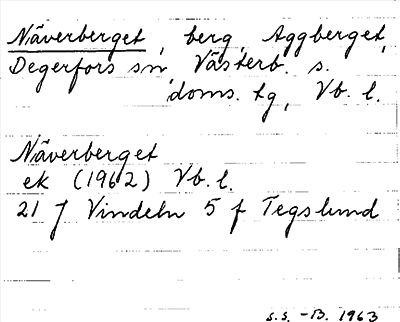 Näverberget, berg, Aggberget,
Degerfors sn Västerb. s.
doms. tg, Vb. l.
Näverberget
ek (1962) Vb. l.
21 J Vindeln 5 f Tegslund
s.s. -B. 1963